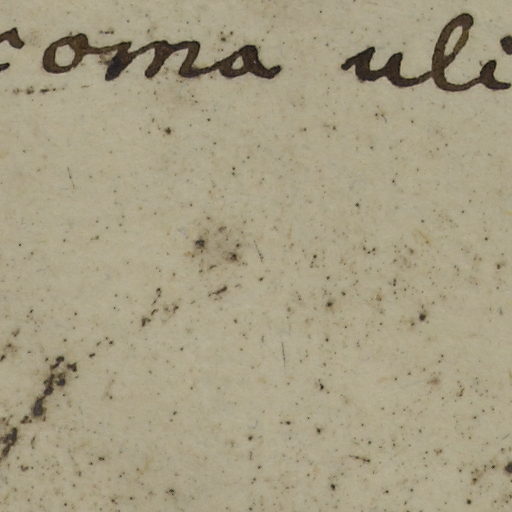 roma uli